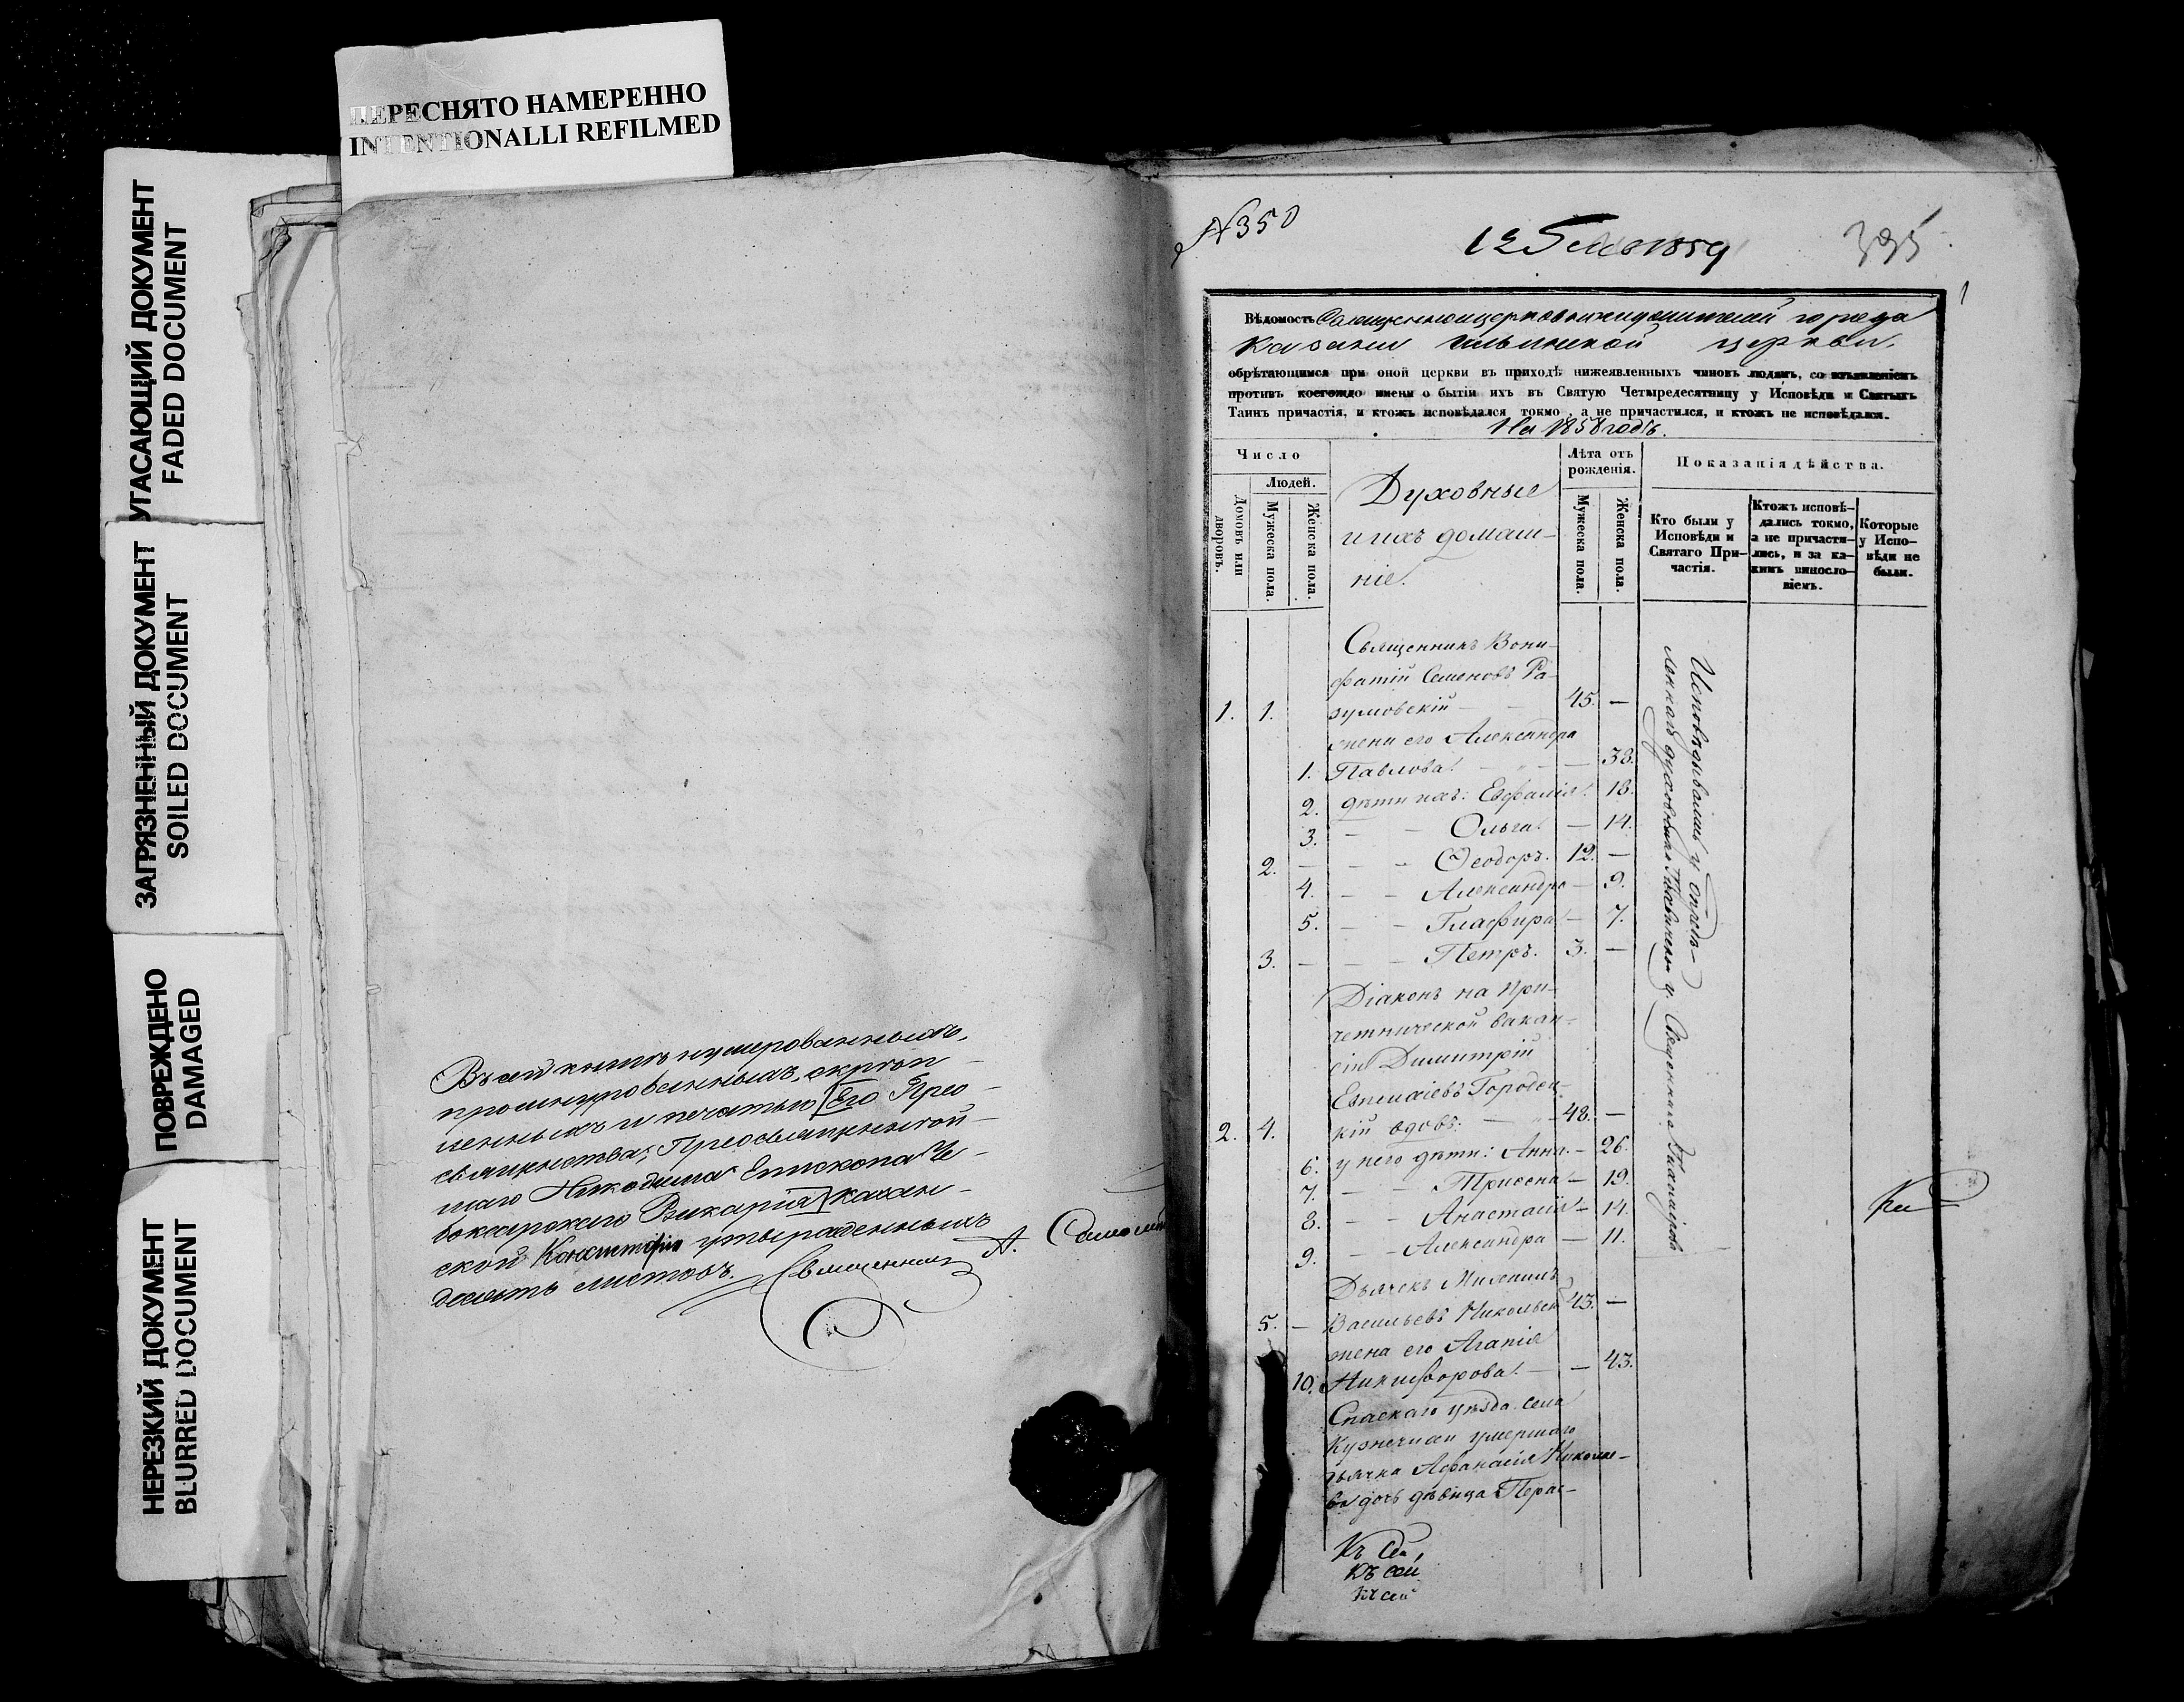 ПЕРЕСНЯТО НАМЕРЕННО
INTENTIONALLI REFILMED
УГАСАЮЩИЙ ДОКУМЕНТ
FADED DOCUMENT
ЗАГРЯЗНЕННЫЙ ДОКУМЕНТ
SOILED DOCUMENT
ПОВРЕЖДЕНО
DAMAGED
НЕРЕЗКИЙ ДОКУМЕНТ
BLURRED DOCUMENT
Въ сей книгѣ нумерованныхъ,
прошнурованныхъ, скрѣп-
ленныхъ и печатью Его Прео-
священства, Преосвященнѣй-
шаго Никодима Епископа Че-
боксарскаго Викарія Казан-
ской Консисторіи утвержденныхъ
десять листовъ. Священникъ А.
№ 350
1859
395
1
Вѣдомость Священноцерковнослужителей города
Казани Ильинской церкви,
обрѣтающимся при оной церкви въ приходѣ нижеявленныхъ чиновъ людямъ, со изъявленіемъ
противъ коегождо имени о бытіи ихъ въ Святую Четыредесятницу у Исповѣди и Святыхъ
Таинъ причастія, и ктожъ исповѣдался токмо, а не причастился, и ктожъ не исповѣдался.
На 1858 годъ.
Число
Людей.
Домовъ или дворовъ.
Мужеска пола.
Женска пола.
Духовные
и ихъ домаш-
ніе.
Лѣта отъ рожденія.
Мужеска пола.
Женска пола.
Показанія дѣйства.
Кто были у Исповѣди и Святаго При-частія.
Ктожъ исповѣ-дались токмо, а не причасти-лись, и за ка-кимъ винносло-віемъ.
Которые у Испо-вѣди не были.
Священникъ Вони-
фатій Семеновъ Ра-
1. 1. зумовскій — 45. —
жена его Александра
1. Павлова — — 38.
2. дѣти ихъ: Евфимія 18.
3. — — Ольга — 14.
2. — — — Ѳеодоръ. 12. —
4. — — Александра — 9.
5. — — Глафира — 7.
3. — — — Петръ. 3. —
Діаконъ на при-
четнической вакан-
сіи Димитрій
Евсигніевъ Городец-
2. 4. кій вдовъ: — 48. —
6. у него дѣти: Анна. — 26.
7. — — Ирисена — 19.
8. — — Анастасія — 14.
9. — — Александра — 11.
Дьячекъ Михаилъ
5. — Васильевъ Никольск 43. —
жена его Агапія
10. Никифорова. — — 43.
Спаскаго уѣзда села
Кузнечихи умершаго
дьячка Афанасія Николае-
ва дочь дѣвица Парас-
Исповѣдывались у Опредѣ-
леннаго духовника
Къ сей
Къ сей
Къ сей